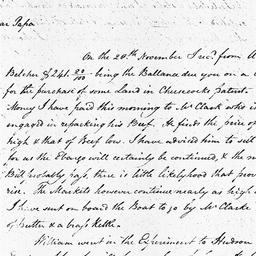 ar Papa
On the 20th November I recd from A
Belcher $241. 80/100 being the Ballance due you on a c
for the purchase of some Land in Cheesecocks patent.
Money I have paid this morning to Mr Clark who is
engaged in repacking his Beef. He finds the price of
high & that of Beef low. I have advised him to sell
for as the Embargo will certainly be continued, & the
Bill probably pass, there is little likelyhood that prov
rise. The Markets however continue nearly as high
I have sent on board the Boat to go by Mr Clarke
of butter & a brass kettle.
William went in the Experiment to Hudson